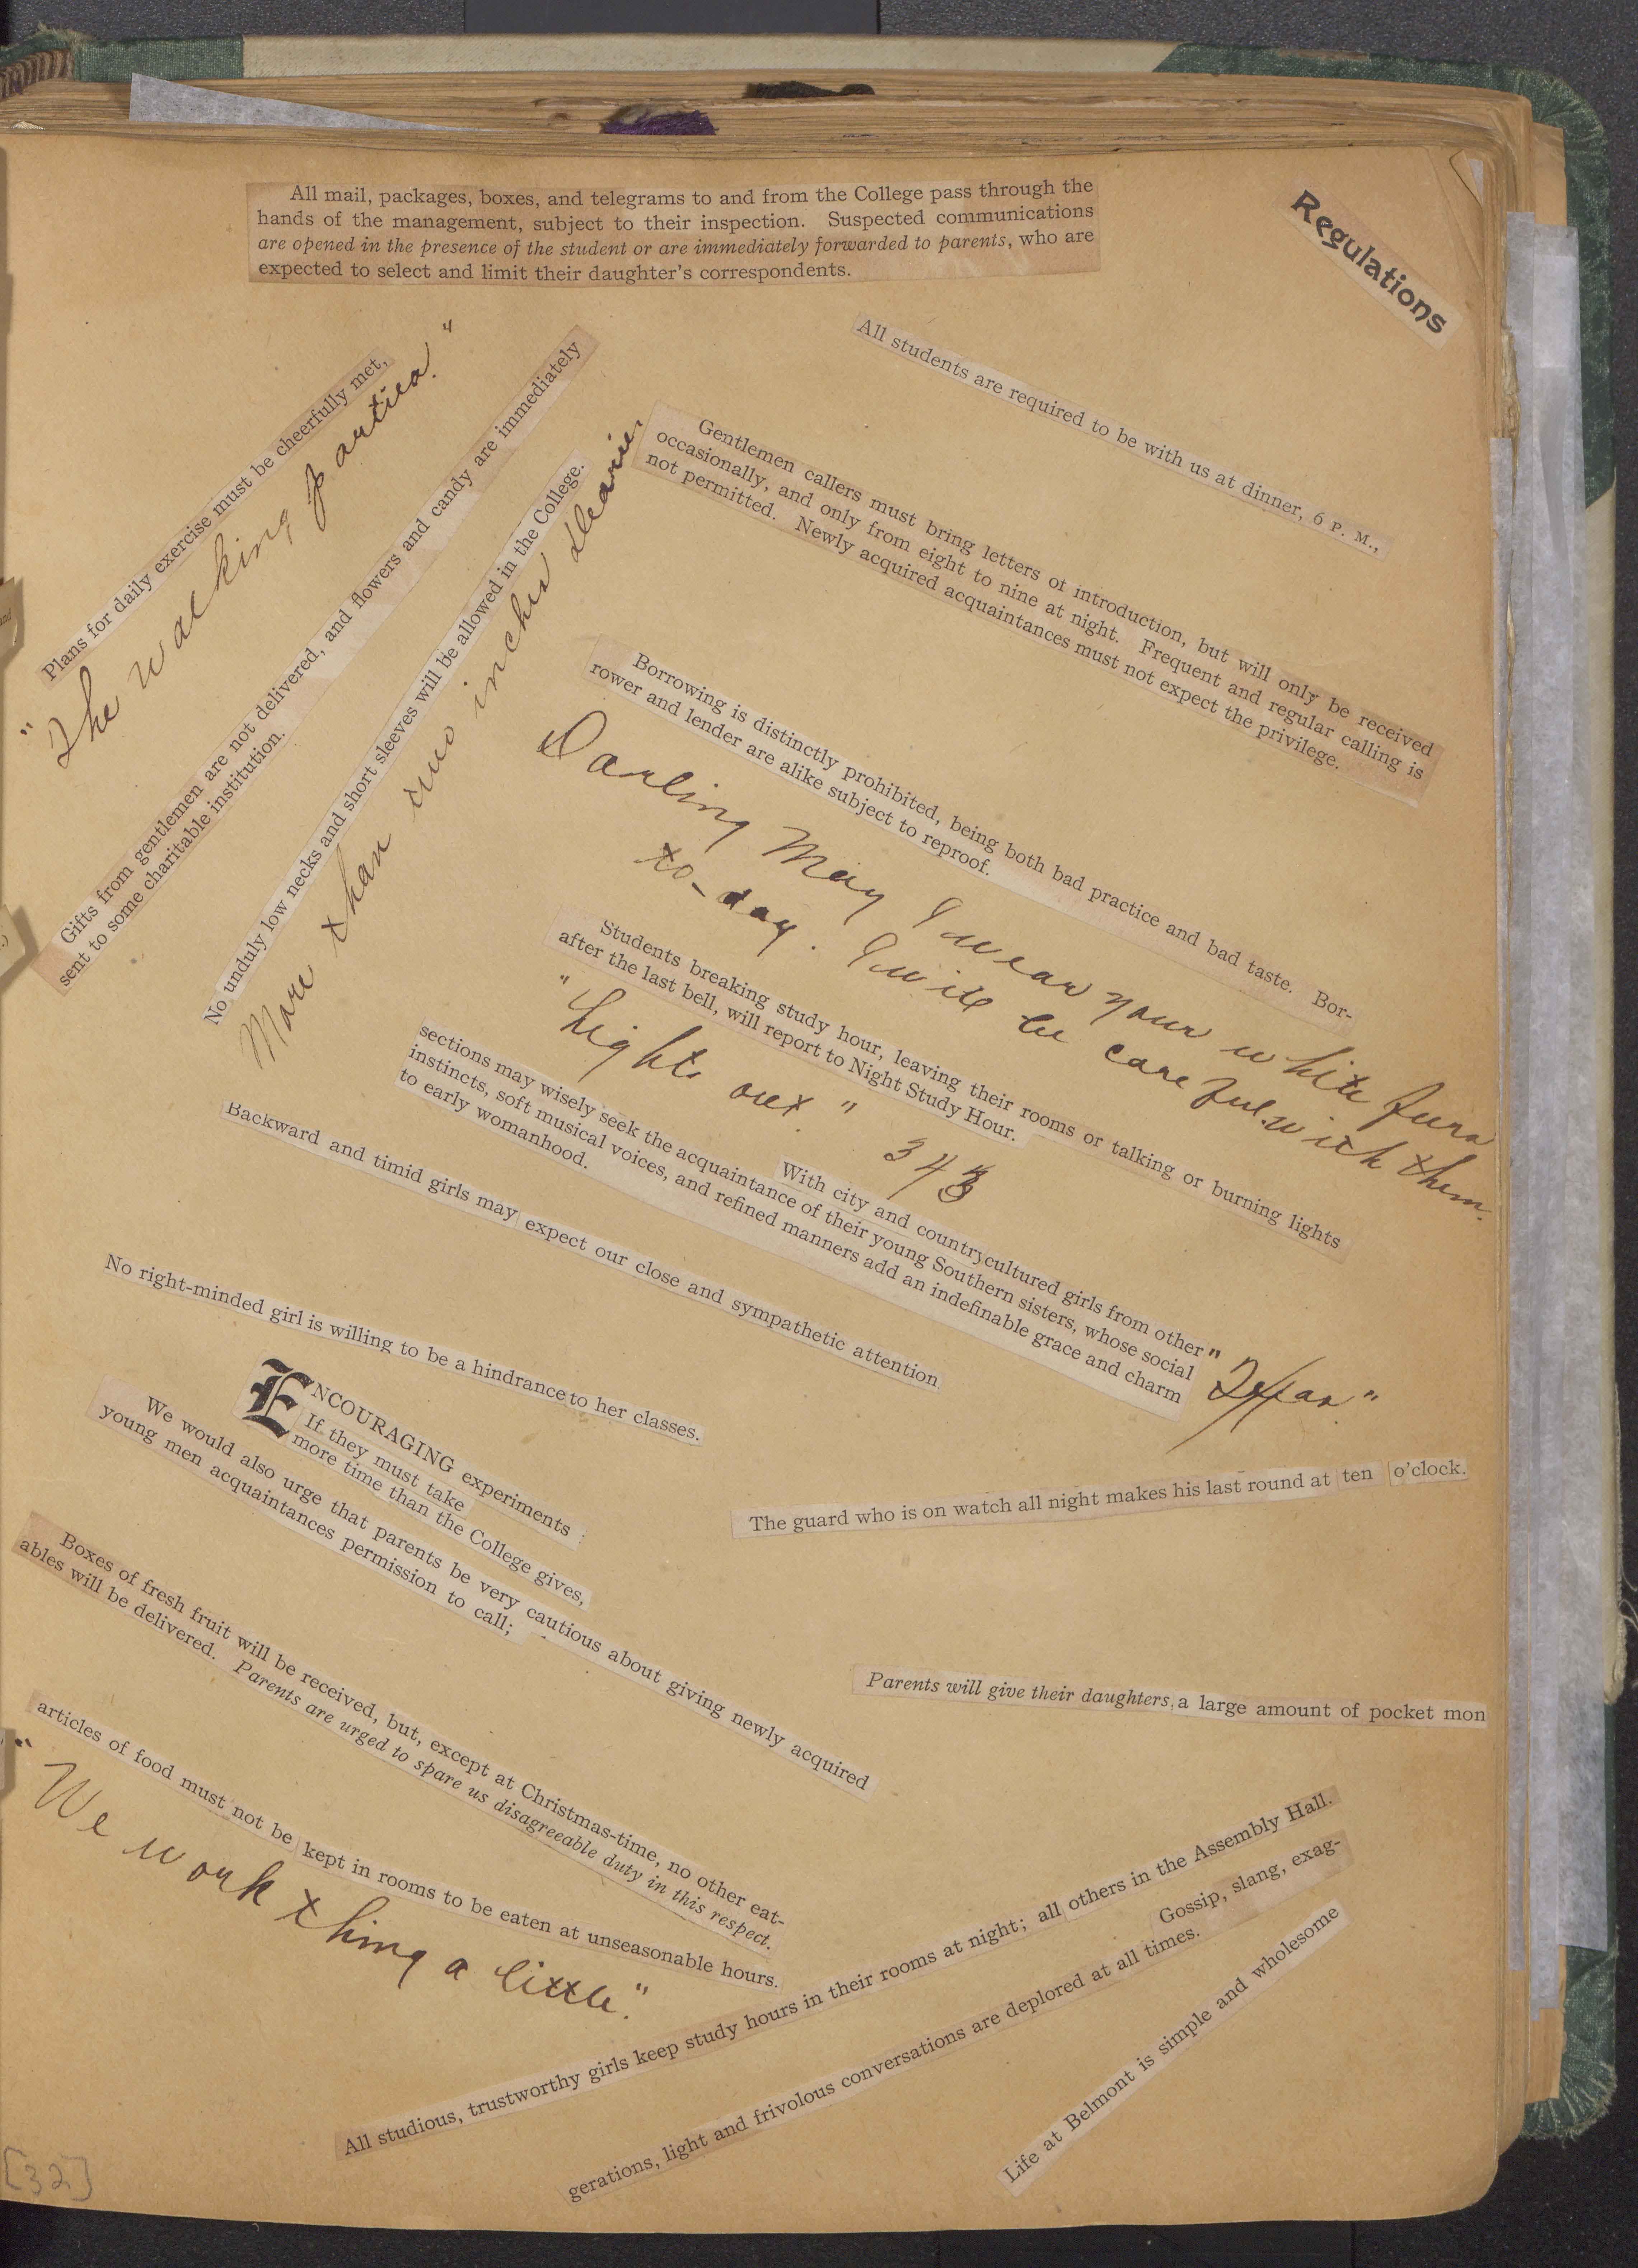 Regulations
All mail, packages, boxes, and telegrams to and from the College pass through the
hands of the management, subject to their inspection. Suspected communications
are opened in the presence of the student or are immediately forwarded to parents, who are
expected to select and limit their daughter's correspondents.
All students are required to be with us at dinner, 6 P. M.,
Plans for daily exercise must be cheerfully met,
"The walking parties."
Gifts from gentlemen are not delivered, and flowers and candy are immediately
sent to some charitable institution.
No unduly low necks and short sleeves will be allowed in the College.
More than two inches dearie.
Gentlemen callers must bring letters of introduction, but will only be received
occasionally, and only from eight to nine at night. Frequent and regular calling is
not permitted. Newly acquired acquaintances must not expect the privilege.
Borrowing is distinctly prohibited, being both bad practice and bad taste. Bor-
rower and lender are alike subject to reproof.
Darling May I wear your white furs
to-day. I will be careful with them.
Students breaking study hour, leaving their rooms or talking or burning lights
after the last bell, will report to Night Study Hour.
"Lights out." 343
With city and country cultured girls from other
sections may wisely seek the acquaintance of their young Southern sisters, whose social
instincts, soft musical voices, and refined manners add an indefinable grace and charm
to early womanhood.
Backward and timid girls may expect our close and sympathetic attention
No right-minded girl is willing to be a hindrance to her classes.
ENCOURAGING experiments
If they must take
more time than the College gives,
The guard who is on watch all night makes his last round at ten o'clock.
We would also urge that parents be very cautious about giving newly acquired
young men acquaintances permission to call;
Boxes of fresh fruit will be received, but, except at Christmas-time, no other eat-
ables will be delivered. Parents are urged to spare us disagreeable duty in this respect.
Parents will give their daughters a large amount of pocket mon
articles of food must not be kept in rooms to be eaten at unseasonable hours.
"We work thing a little."
All studious, trustworthy girls keep study hours in their rooms at night; all others in the Assembly Hall.
Gossip, slang, exag-
gerations, light and frivolous conversations are deplored at all times.
Life at Belmont is simple and wholesome
[32]